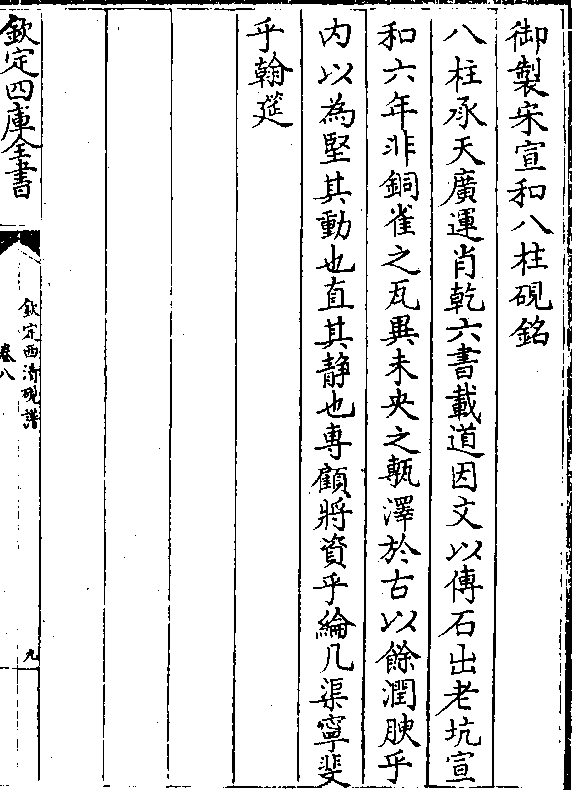 御製宋宣和八柱硯銘
八柱承天廣運肖乾六書載道因文以傳石出老坑宣
和六年非銅雀之瓦異未央之甎澤於古以餘潤腴乎
内以為堅其動也直其靜也專顧將資乎綸几渠寧斐
乎翰筵
欽定四庫全書
欽定西清硯譜
卷八
九